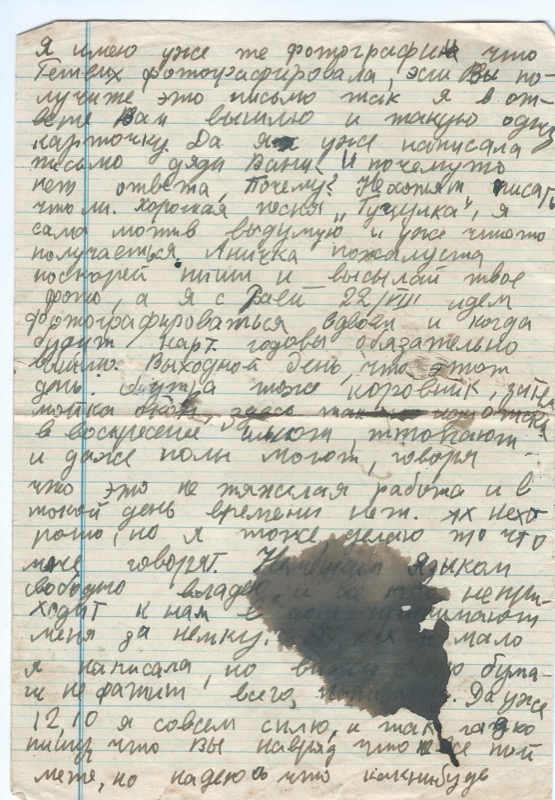 Я имею уже же фотографии что
фотографировала, если Вы по-
лучите это письмо так я в от-
вете Вам вышлю и такую одну
карточку. Да я уже написала
письмо дяди Вани и почемуто
нет ответа, Почему? Нехотят писать
чтоли. Хорошая песня „Гуцулка“, я
сама мотив выдумую и уже чтото
получаеться. Аничка пожалуста
поскорей пиши и высылай твое
фото, а я с Раей 22/VIII идем
фотографироваться вдвоем и когда
будут карт. годовы обязательно
вышлю. Выходной день, что этот
день. тоже коровник,
мойка здесь
в воскресение шьют, штопают
и даже полы моют, говоря
что это не тяжелая работа и в
такой день времени нет. нехо
рошо, но я тоже делаю то что
мне говорят. Языком
свободно владею, и все
ходят к нам
меня за немку. мало
я написала, но бума-
ги не фатит всего, Да уже
12,10 я совсем сплю, и так гадко
пишу что вы навряд что все пой
мете, но надеюсь что какнибудь